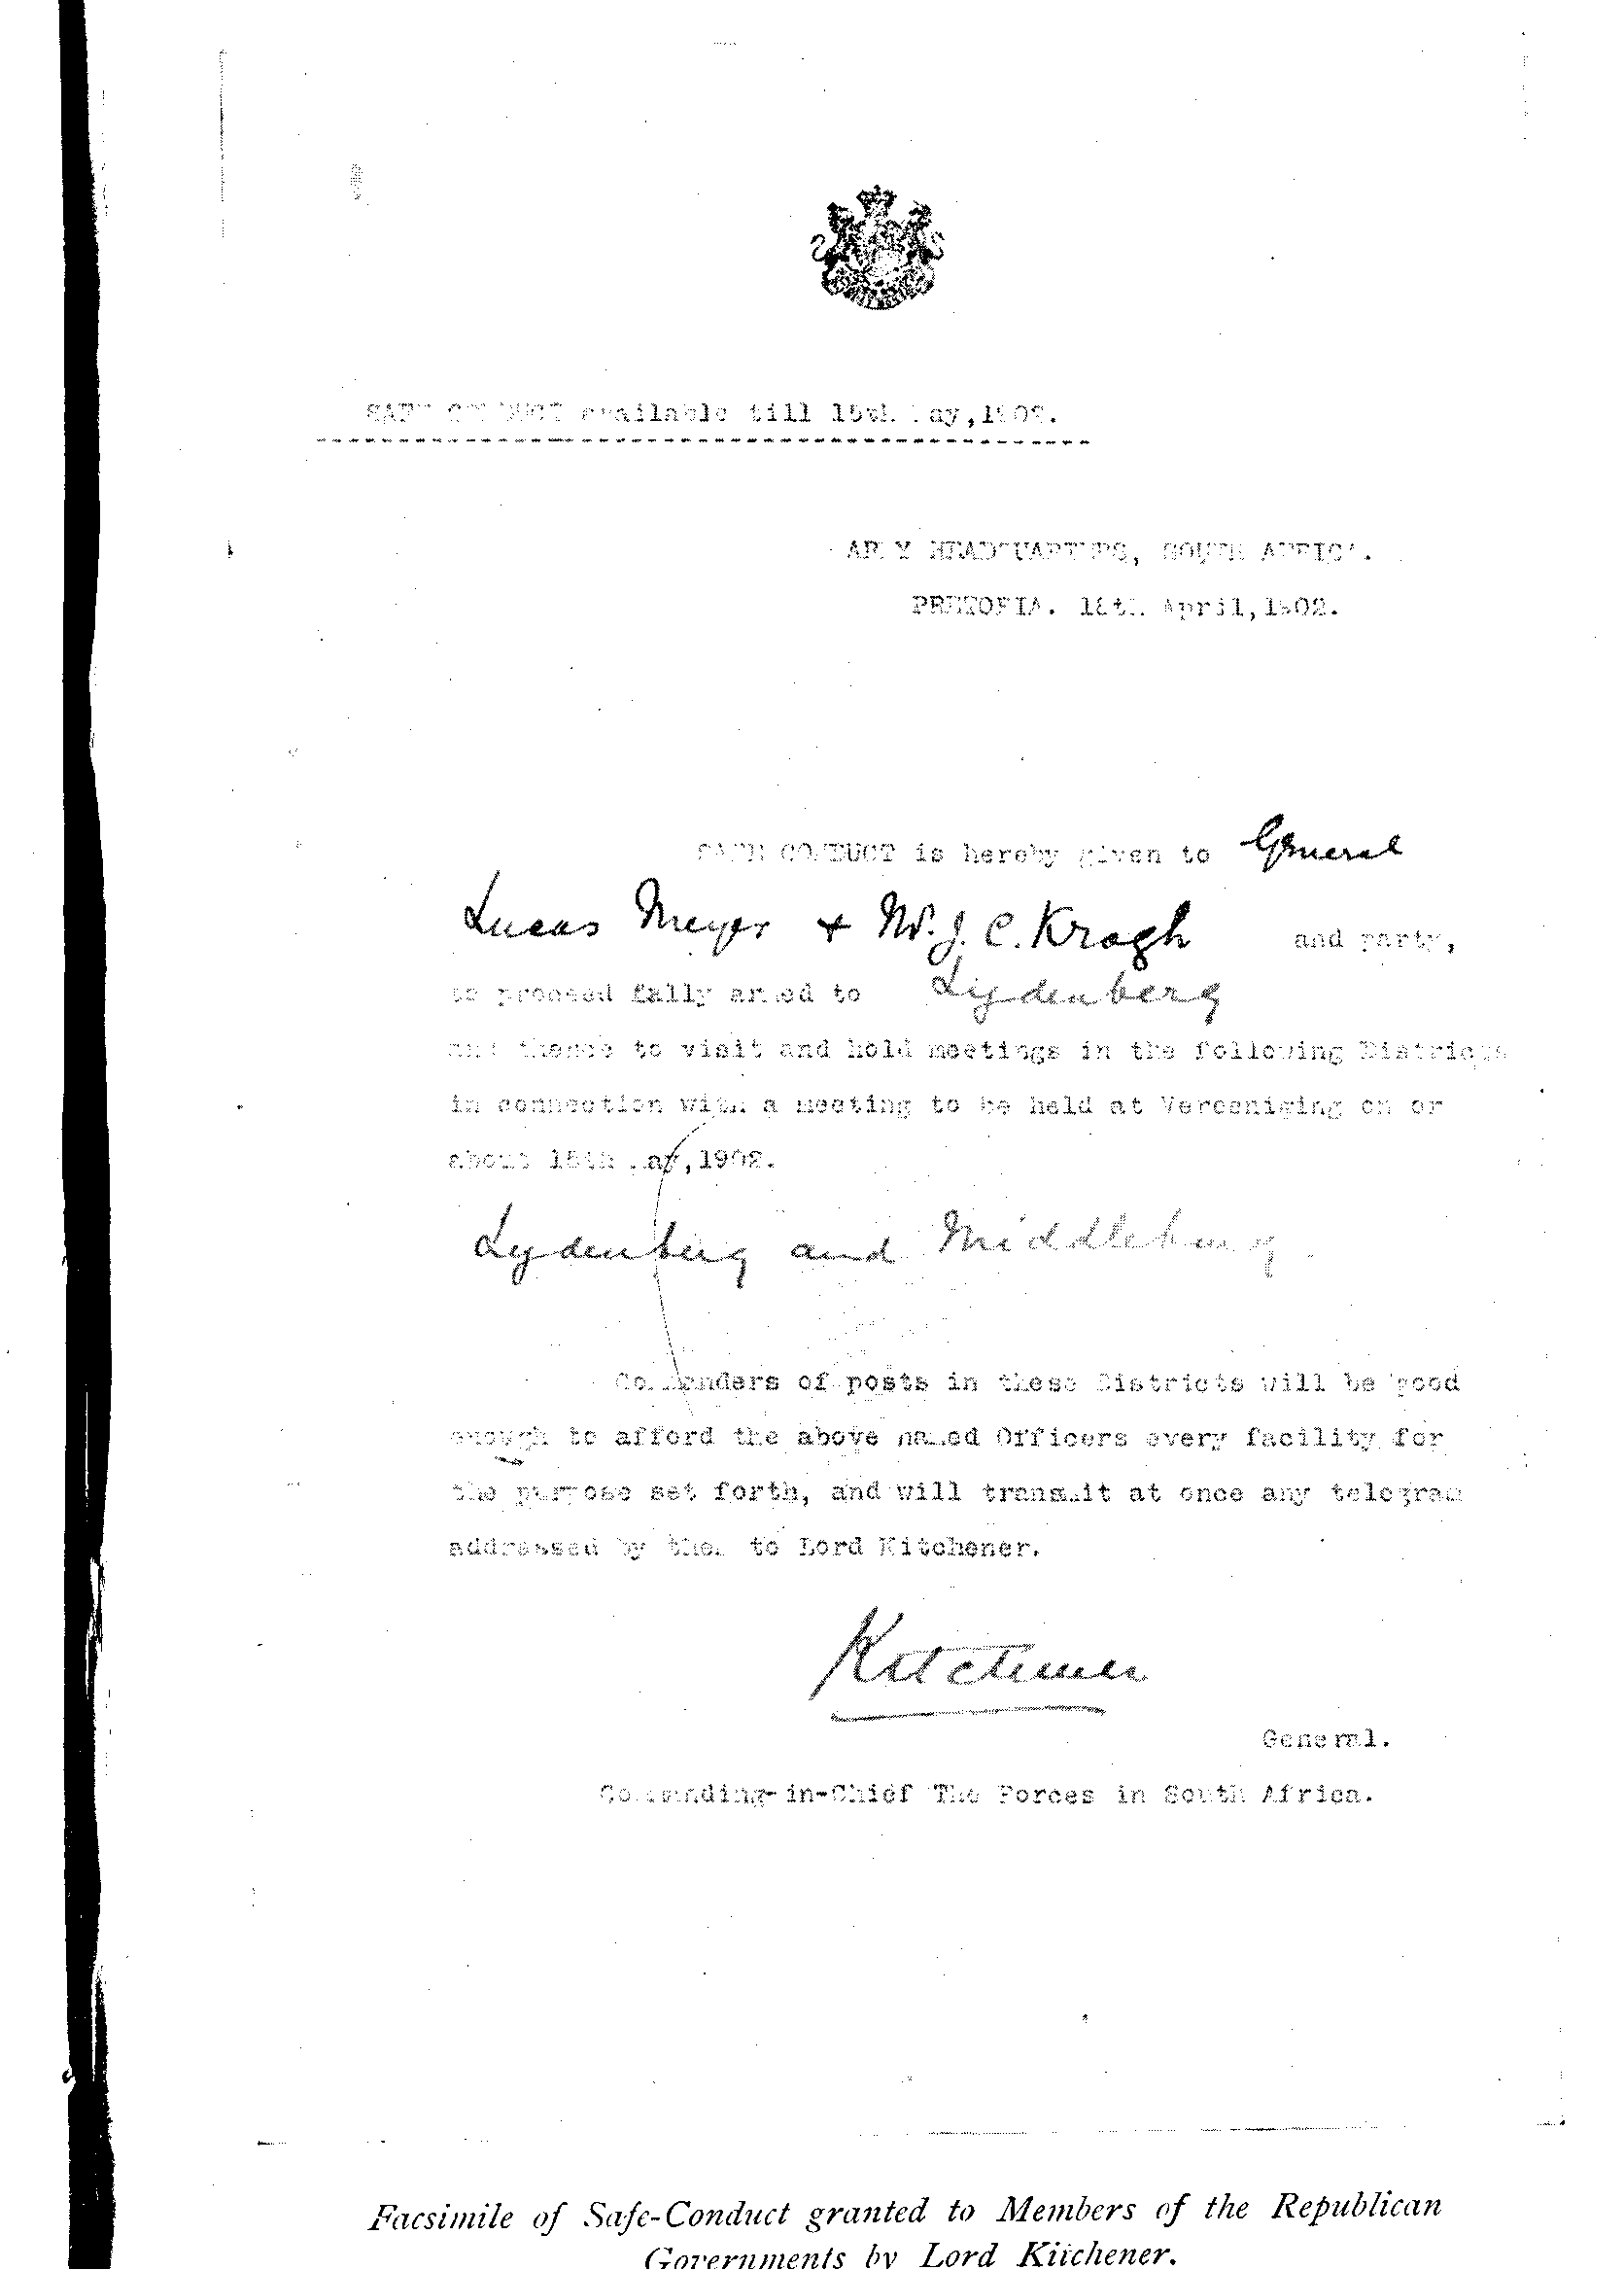 SAFE CONDUCT available till 15th May, 1902.
ARMY HEADQUARTERS, SOUTH AFRICA.
PRETORIA. 18th April, 1902.
SAFE CONDUCT is hereby given to General
Lucas Meyer + Mr. J. C. Krogh and party,
to proceed fully armed to Lydenberg
and thence to visit and hold meetings in the following Districts
in connection with a meeting to be held at Vereeniging on or
about 15th May, 1902.
Lydenberg and Middleburg.
Commanders of posts in these Districts will be good
enough to afford the above named Officers every facility for
the purpose set forth, and will transmit at once any telegram
addressed by them to Lord Kitchener.
Kitchener
General.
Commanding-in-Chief The Forces in South Africa.
Facsimile of Safe-Conduct granted to Members of the Republican
Governments by Lord Kitchener.